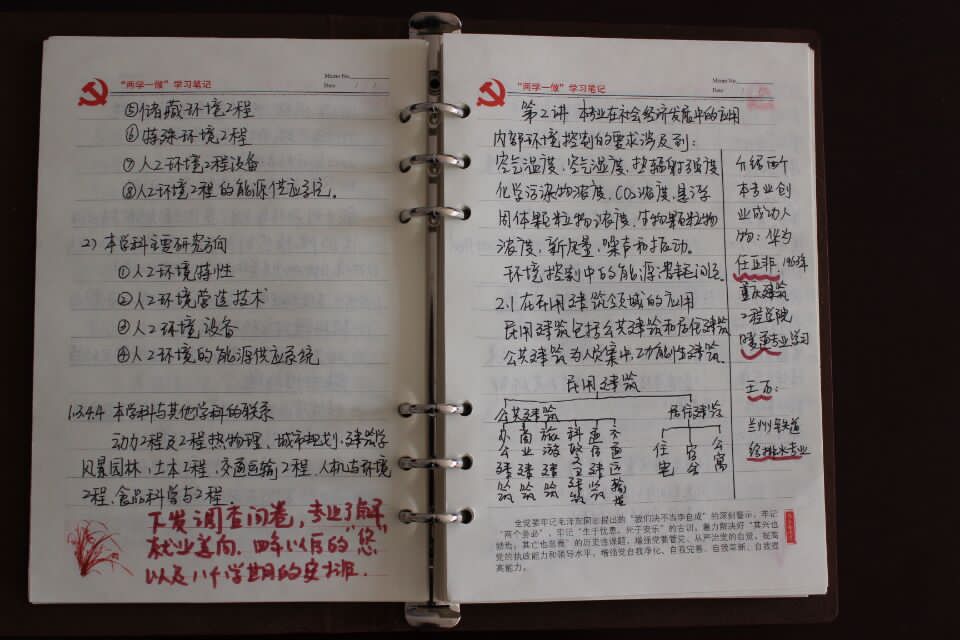 "两学一做"学习笔记
Memo No.
Date / /
⑤储藏环境工程
⑥特殊环境工程
⑦人工环境工程设备
⑧人工环境工程的能源供应系统。
2)本学科主要研究方向
①人工环境特性
②人工环境营造技术
③人工环境设备
④人工环境的能源供应系统
1.3.4.4 本学科与其他学科的联系
动力工程及工程热物理、城市规划、建筑学
风景园林、土木工程、交通运输工程、人机与环境
工程、食品科学与工程.
下发调查问卷,专业"了解"
就业意向、四年以后的"您"
以及八个学期的安排.
"两学一做"学习笔记
Memo No.
Date / /
第2讲 本专业在社会经济发展中的应用
内部环境控制的要求涉及到:
空气温度、空气湿度、热辐射强度
化学污染物浓度、CO₂浓度、悬浮
固体颗粒物浓度、生物颗粒物
浓度、新风量、噪声和振动。
环境控制中的能源消耗问题
2.1 在民用建筑领域的应用
民用建筑包括公共建筑和居住建筑
公共建筑为人员集中、功能性建筑.
民用建筑
公共建筑 居住建筑
办公建筑
商业建筑
旅游建筑
科教文建筑
通信建筑
交通运输
住宅
宿舍
公寓
介绍两个
本专业创
业成功人
物:华为
任正非.1963年
重庆建筑
工程学院
暖通专业学习
王石:
兰州铁道
给排水专业
全党要牢记毛泽东同志提出的"我们决不当李自成"的深刻警示,牢记
"两个务必",牢记"生于忧患,死于安乐"的古训,着力解决好"其兴也
勃焉,其亡也忽焉"的历史性课题,增强党要管党、从严治党的自觉,提高
党的执政能力和领导水平,增强党自我净化、自我完善、自我革新、自我提
高能力。